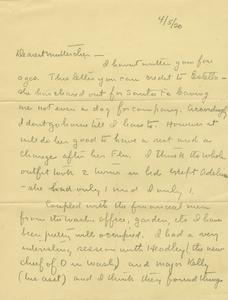 4/5/20
Dearest mother
I haven't written you for
ages. This letter you can credit to Estelle
she has hared out for Santa Fe leaving
me not even a day for company. Accordingly
I don't go home till I have to. However it
will do her good to have a rest and a
change after her Flu. I think the whole
outfit took 2 turns in bed except Adelina
she had only 1 and I only 1.
Coupled with the financial men
from the Wash. office, garden, etc I have
been pretty well occupied. I had a very
interesting session with Headley (the new
chief of O in Wash) and Major Kelly
(his asst) and I think they found things